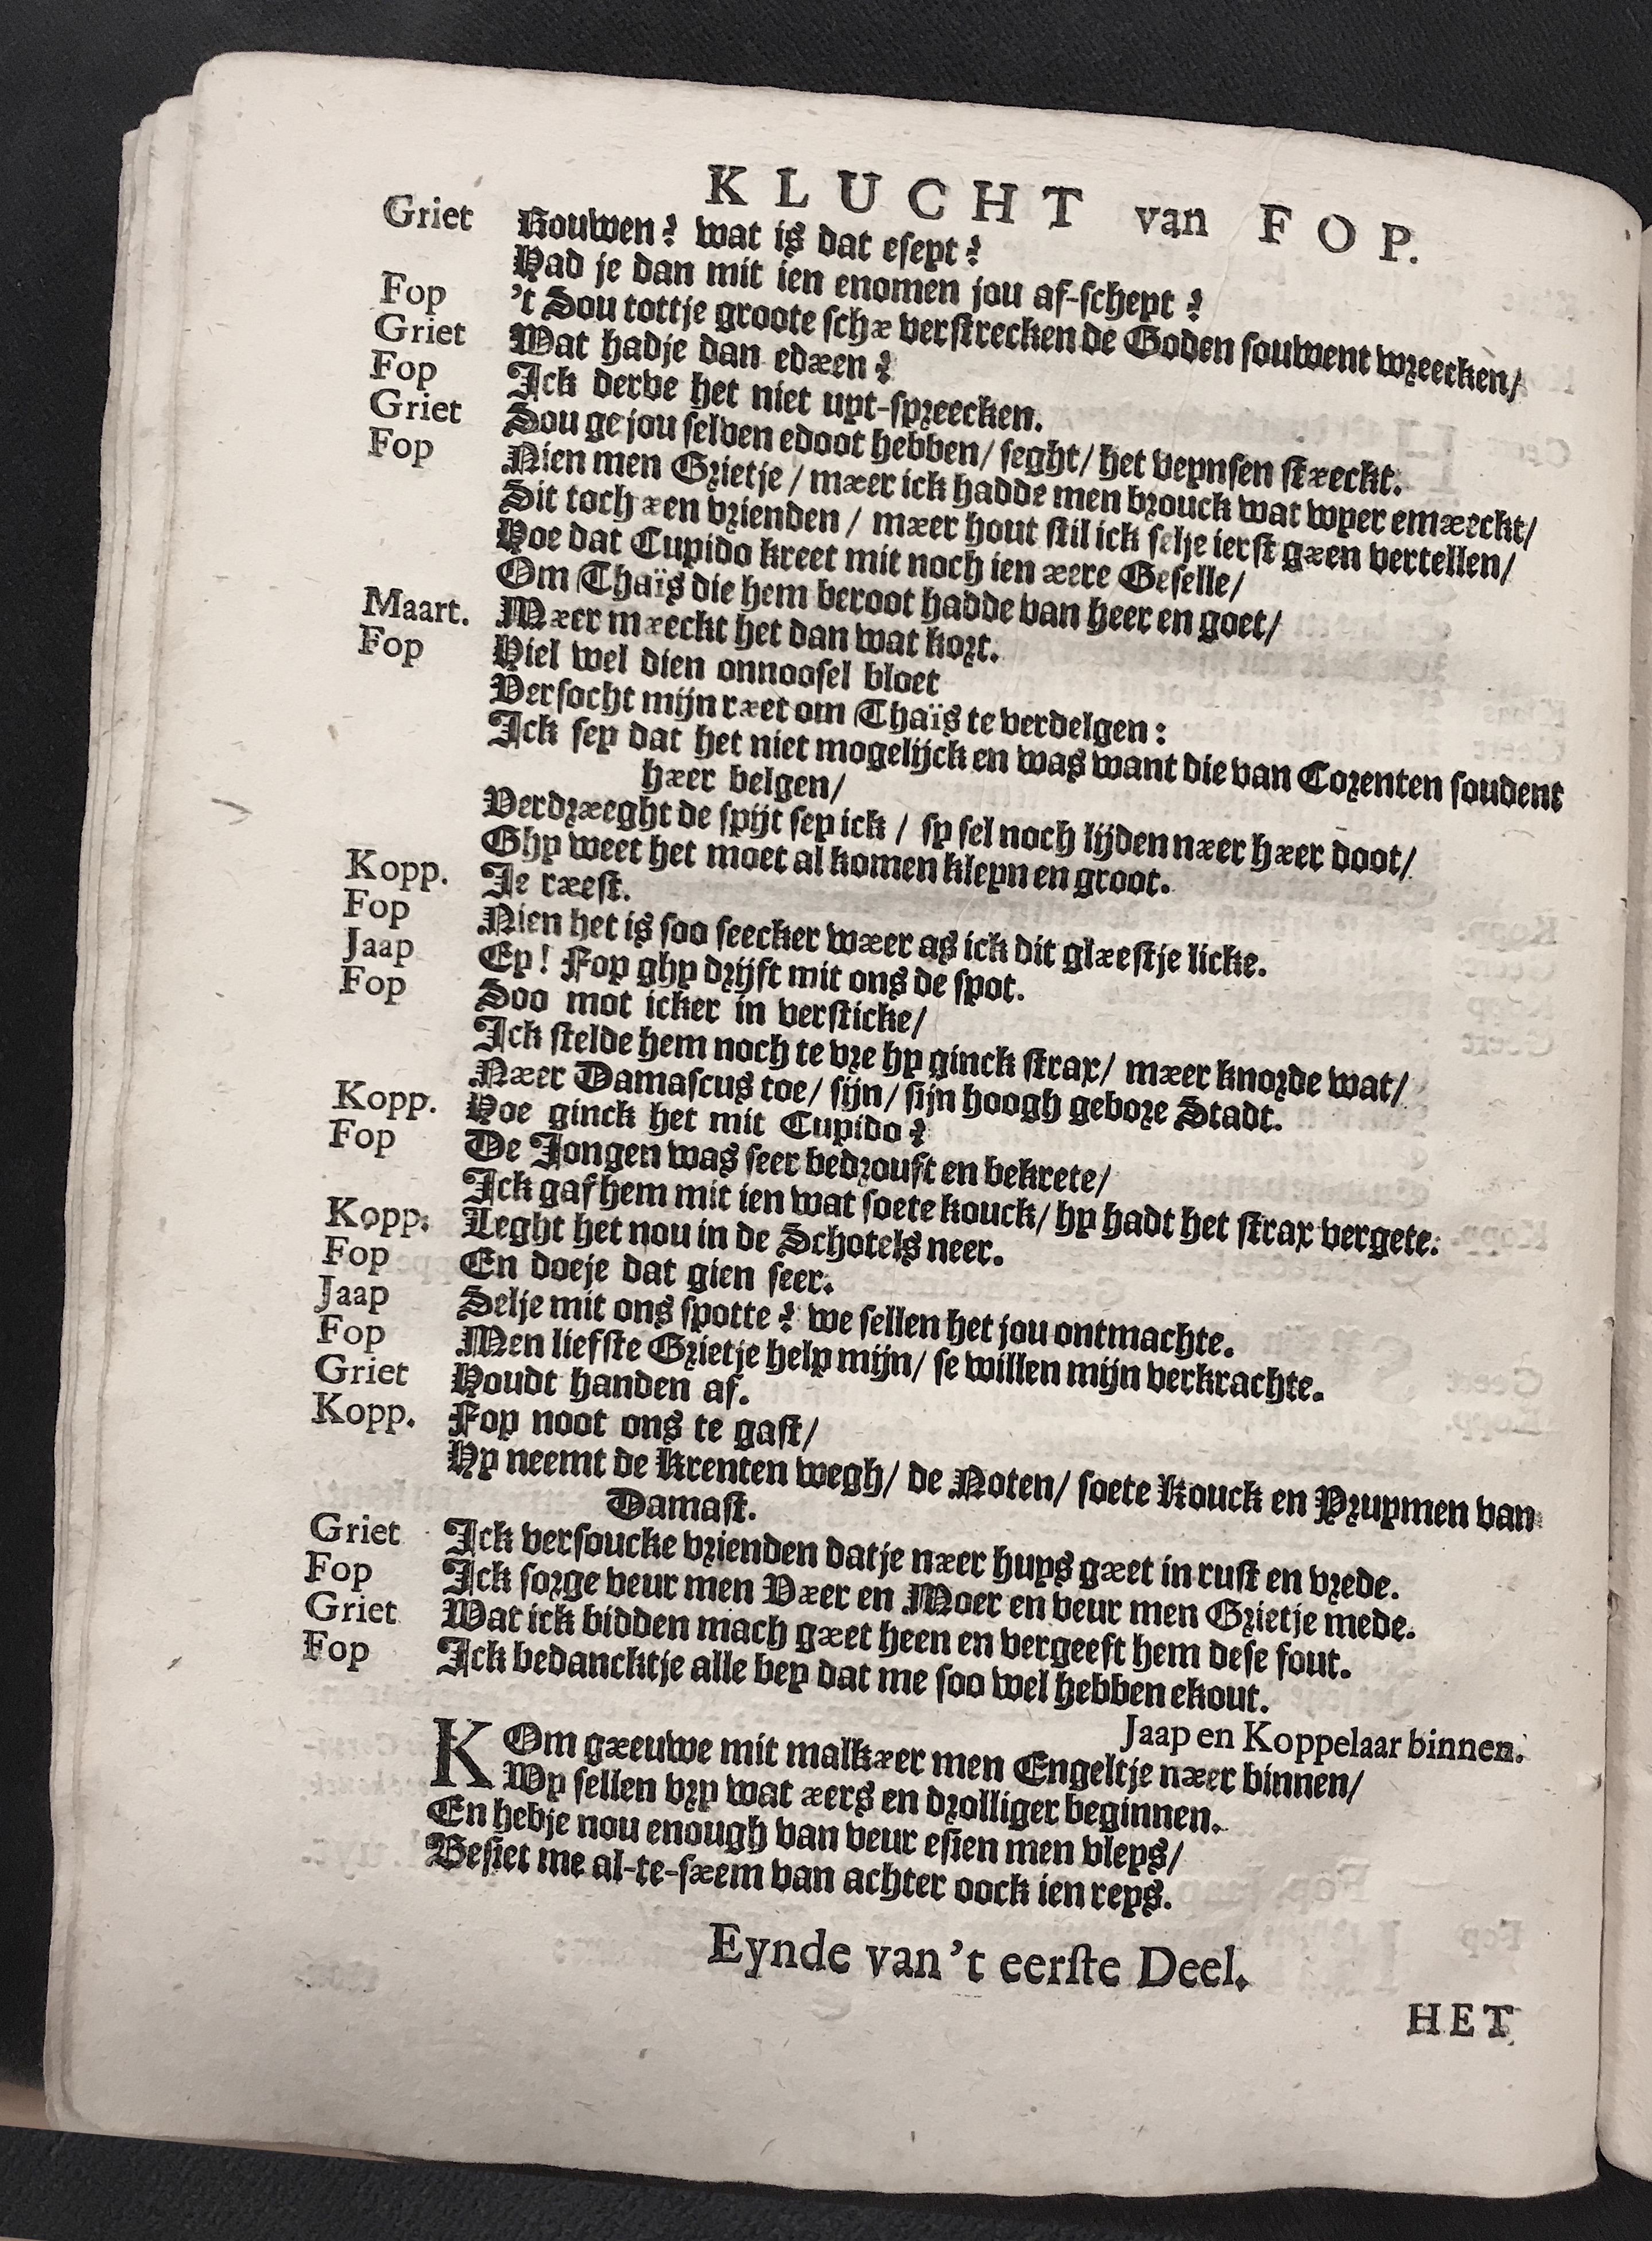 KLUCHT van FOP.
Griet Rouwen? wat is dat eseyt?
Had je dan mit ien enomen jou af-scheyt?
Fop 't Sou tottje groote schæ verstrecken de Goden souwent wreecken/
Griet Wat hadje dan edæen?
Fop Ick derve het niet uyt-spreecken.
Griet Sou ge jou selven edoot hebben/ seght/ het veynsen stæeckt.
Fop Nien men Grietje / mæer ick hadde men brouck wat wyer emæeckt/
Sit toch æen vrienden / mæer hout stil ick selje ierst gæen vertellen/
Hoe dat Cupido kreet mit noch ien æere Geselle/
Om Thaïs die hem beroot hadde van heer en goet/
Maart. Mæer mæeckt het dan wat kort.
Fop Hiel wel dien onnoosel bloet
Versocht mijn ræet om Thaïs te verdelgen:
Ick sey dat het niet mogelijck en was want die van Corenten soudent
hæer belgen/
Verdræeght de spijt sey ick / sy sel noch lijden næer hæer doot/
Ghy weet het moet al komen kleyn en groot.
Kopp. Je ræest.
Fop Nien het is soo seecker wæer as ick dit glæestje licke.
Jaap Ey! Fop ghy drijft mit ons de spot.
Fop Soo mot icker in versticke/
Ick stelde hem noch te vre hy ginck strax/ mæer knorde wat/
Næer Damascus toe/ sijn/ sijn hoogh gebore Stadt.
Kopp. Hoe ginck het mit Cupido?
Fop De Jongen was seer bedrouft en bekrete/
Ick gaf hem mit ien wat soete kouck/ hy hadt het strax vergete.
Kopp. Leght het nou in de Schotels neer.
Fop En doeje dat gien seer.
Jaap Selje mit ons spotte? we sellen het jou ontmachte.
Fop Men liefste Grietje help mijn/ se willen mijn verkrachte.
Griet Houdt handen af.
Kopp. Fop noot ons te gast/
Hy neemt de Krenten wegh/ de Noten/ soete Kouck en Pruymen van
Damast.
Griet Ick versoucke vrienden datje næer huys gæet in rust en vrede.
Fop Ick sorge veur men Væer en Moer en veur men Grietje mede.
Griet Wat ick bidden mach gæet heen en vergeeft hem dese fout.
Fop Ick bedancktje alle bey dat me soo wel hebben ekout.
Jaap en Koppelaar binnen.
KOm gæeuwe mit malkæer men Engeltje næer binnen/
Wy sellen vry wat æers en drolliger beginnen.
En hebje nou enough van veur esien men vleys/
Besiet me al-te-sæem van achter oock ien reys.
Eynde van't eerste Deel.
HET